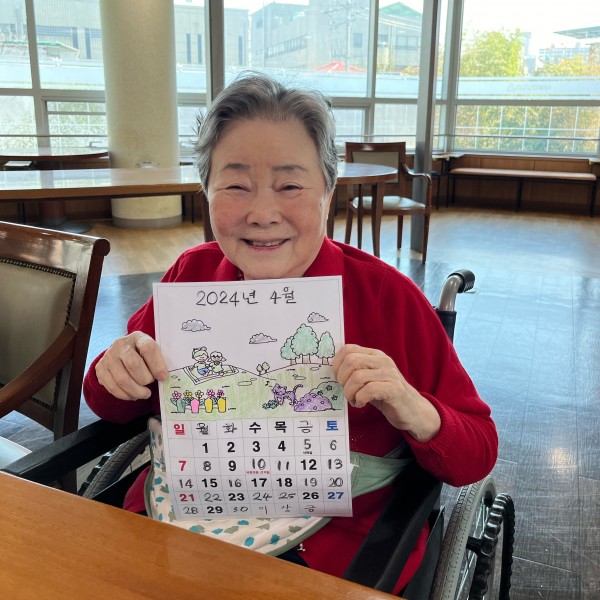 2024년 4월
일 월 화 수 목 금 토
1 2 3 4 5 6
7 8 9 10 11 12 13
14 15 16 17 18 19 20
21 22 23 24 25 26 27
28 29 30 이 상 금